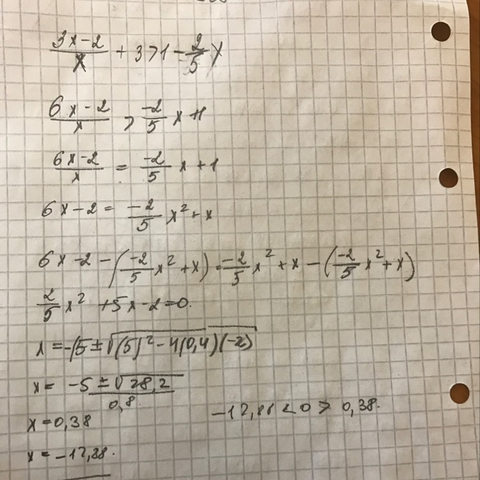 3x-2/x + 3 > 1 - 2/5 x
6x-2/x > -2/5 x + 1
6x-2/x = -2/5 x + 1
6x-2 = -2/5 x² + x
6x-2-(-2/5 x² + x) = -2/5 x² + x - (-2/5 x² + x)
2/5 x² + 5x - 2 = 0.
x = -(5 ± √(5)² - 4(0,4)(-2)
x = -5 ± √28,2 / 0,8
x = 0,38 -12,88 < 0 > 0,38.
x = -12,88.